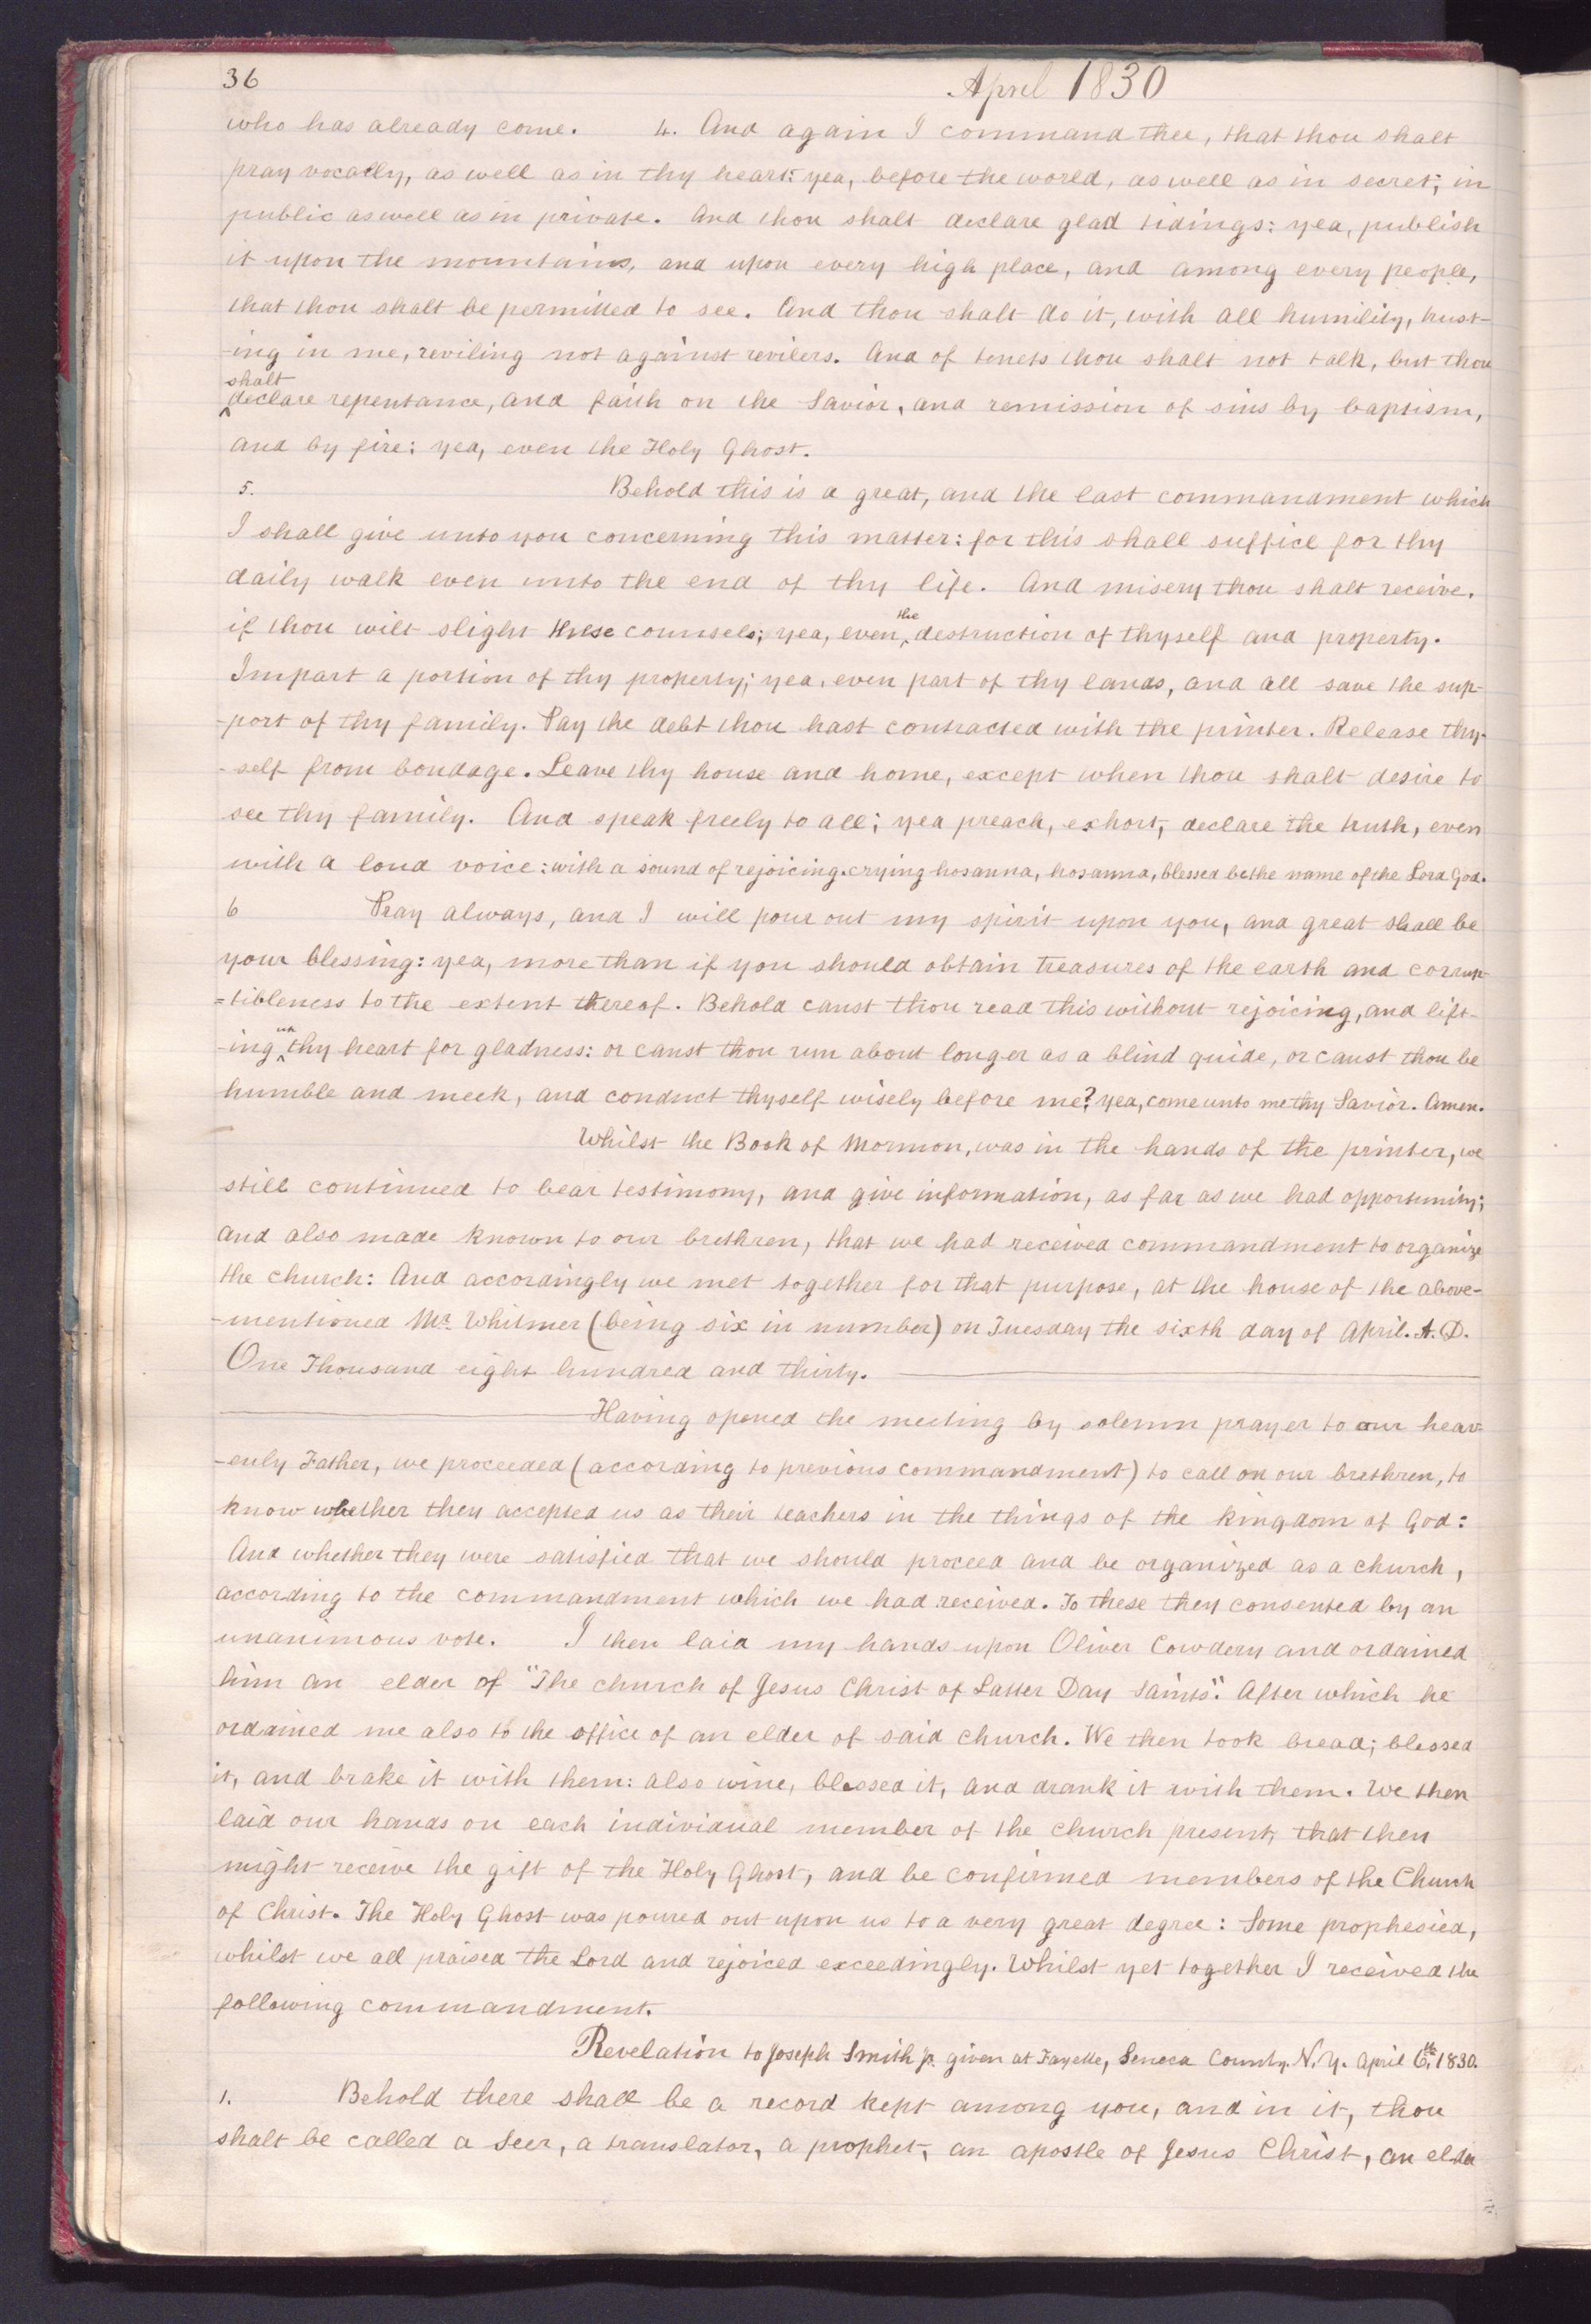 36
April 1830
who has already come. 4. And again I command thee, that thou shalt
pray vocally, as well as in thy heart: yea, before the world, as well as in secret; in
public as well as in private. And thou shalt declare glad tidings: yea, publish
it upon the mountains, and upon every high place, and among every people,
that thou shalt be permitted to see. And thou shalt do it, with all humility, trust-
-ing in me, reviling not against revilers. And of tenets thou shalt not talk, but thou
shalt
declare repentance, and faith on the Savior, and remission of sins by baptism,
and by fire: yea, even the Holy Ghost.
5. Behold this is a great, and the last commandment which
I shall give unto you concerning this matter: for this shall suffice for thy
daily walk even unto the end of thy life. And misery thou shalt receive.
the
if thou wilt slight these counsels; yea, even destruction of thyself and property.
Impart a portion of thy property; yea, even part of thy lands, and all save the sup-
-port of thy family. Pay the debt thou hast contracted with the printer. Release thy-
-self from bondage. Leave thy house and home, except when thou shalt desire to
see thy family. And speak freely to all; yea preach, exhort, declare the truth, even
with a loud voice: with a sound of rejoicing. crying hosanna, hosanna, blessed be the name of the Lord God.
6 Pray always, and I will pour out my spirit upon you, and great shall be
your blessing: yea, more than if you should obtain treasures of the earth and corrup-
=tibleness to the extent thereof. Behold canst thou read this without rejoicing, and lift-
up
-ing thy heart for gladness: or canst thou run about longer as a blind guide, or canst thou be
humble and meek, and conduct thyself wisely before me? yea, come unto me thy Savior. Amen.
Whilst the Book of Mormon, was in the hands of the printer, we
still continued to bear testimony, and give information, as far as we had opportunity;
and also made known to our brethren, that we had received commandment to organize
the church: And accordingly we met together for that purpose, at the house of the above-
-mentioned Mr. Whitmer (being six in number) on Tuesday the sixth day of April. A.D.
One Thousand eight hundred and thirty.
Having opened the meeting by solemn prayer to our heav-
-enly Father, we proceeded (according to previous commandment) to call on our brethren, to
know whether they accepted us as their teachers in the things of the kingdom of God:
And whether they were satisfied that we should proceed and be organized as a church,
according to the commandment which we had received. To these they consented by an
unanimous vote. I then laid my hands upon Oliver Cowdery and ordained
him an elder of "The church of Jesus Christ of Latter Day Saints". After which he
ordained me also to the office of an elder of said church. We then took bread; blessed
it, and brake it with them: also wine, blessed it, and drank it with them. We then
laid our hands on each individual member of the church present, that then
might receive the gift of the Holy Ghost, and be confirmed members of the Church
of Christ. The Holy Ghost was poured out upon us to a very great degree: Some prophesied,
whilst we all praised the Lord and rejoiced exceedingly. Whilst yet together I received the
following commandment.
Revelation to Joseph Smith jr. given at Fayette, Seneca County. N.Y. April 6th, 1830.
1. Behold there shall be a record kept among you, and in it, thou
shalt be called a Seer, a translator, a prophet, an apostle of Jesus Christ, an elder